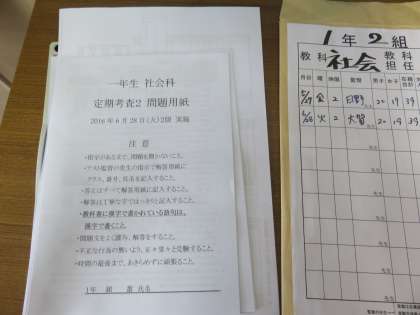 一年生 社会科
定期考査2 問題用紙
2016年6月28日(火)2限 実施
注 意
・指示があるまで、問題を開かないこと。
・テスト監督の先生の指示で解答用紙に
クラス、番号、氏名を記入すること。
・答えはすべて解答用紙に記入すること。
・解答は丁寧な字ではっきりと記入すること。
・教科書に漢字で書かれている語句は、
漢字で書くこと。
・問題文をよく読み、解答をすること。
・不正な行為の無いよう、正々堂々と受験すること。
・時間の最後まで、あきらめずに頑張ること。
1年 組 番 氏名
1年2組
教科 社会 教科担任
月日 曜 時限 監督 男子 女子
金 2 日野 20 19 39
火 2 大智 20 19 39
先生
先生
先生
先生
先生
先生